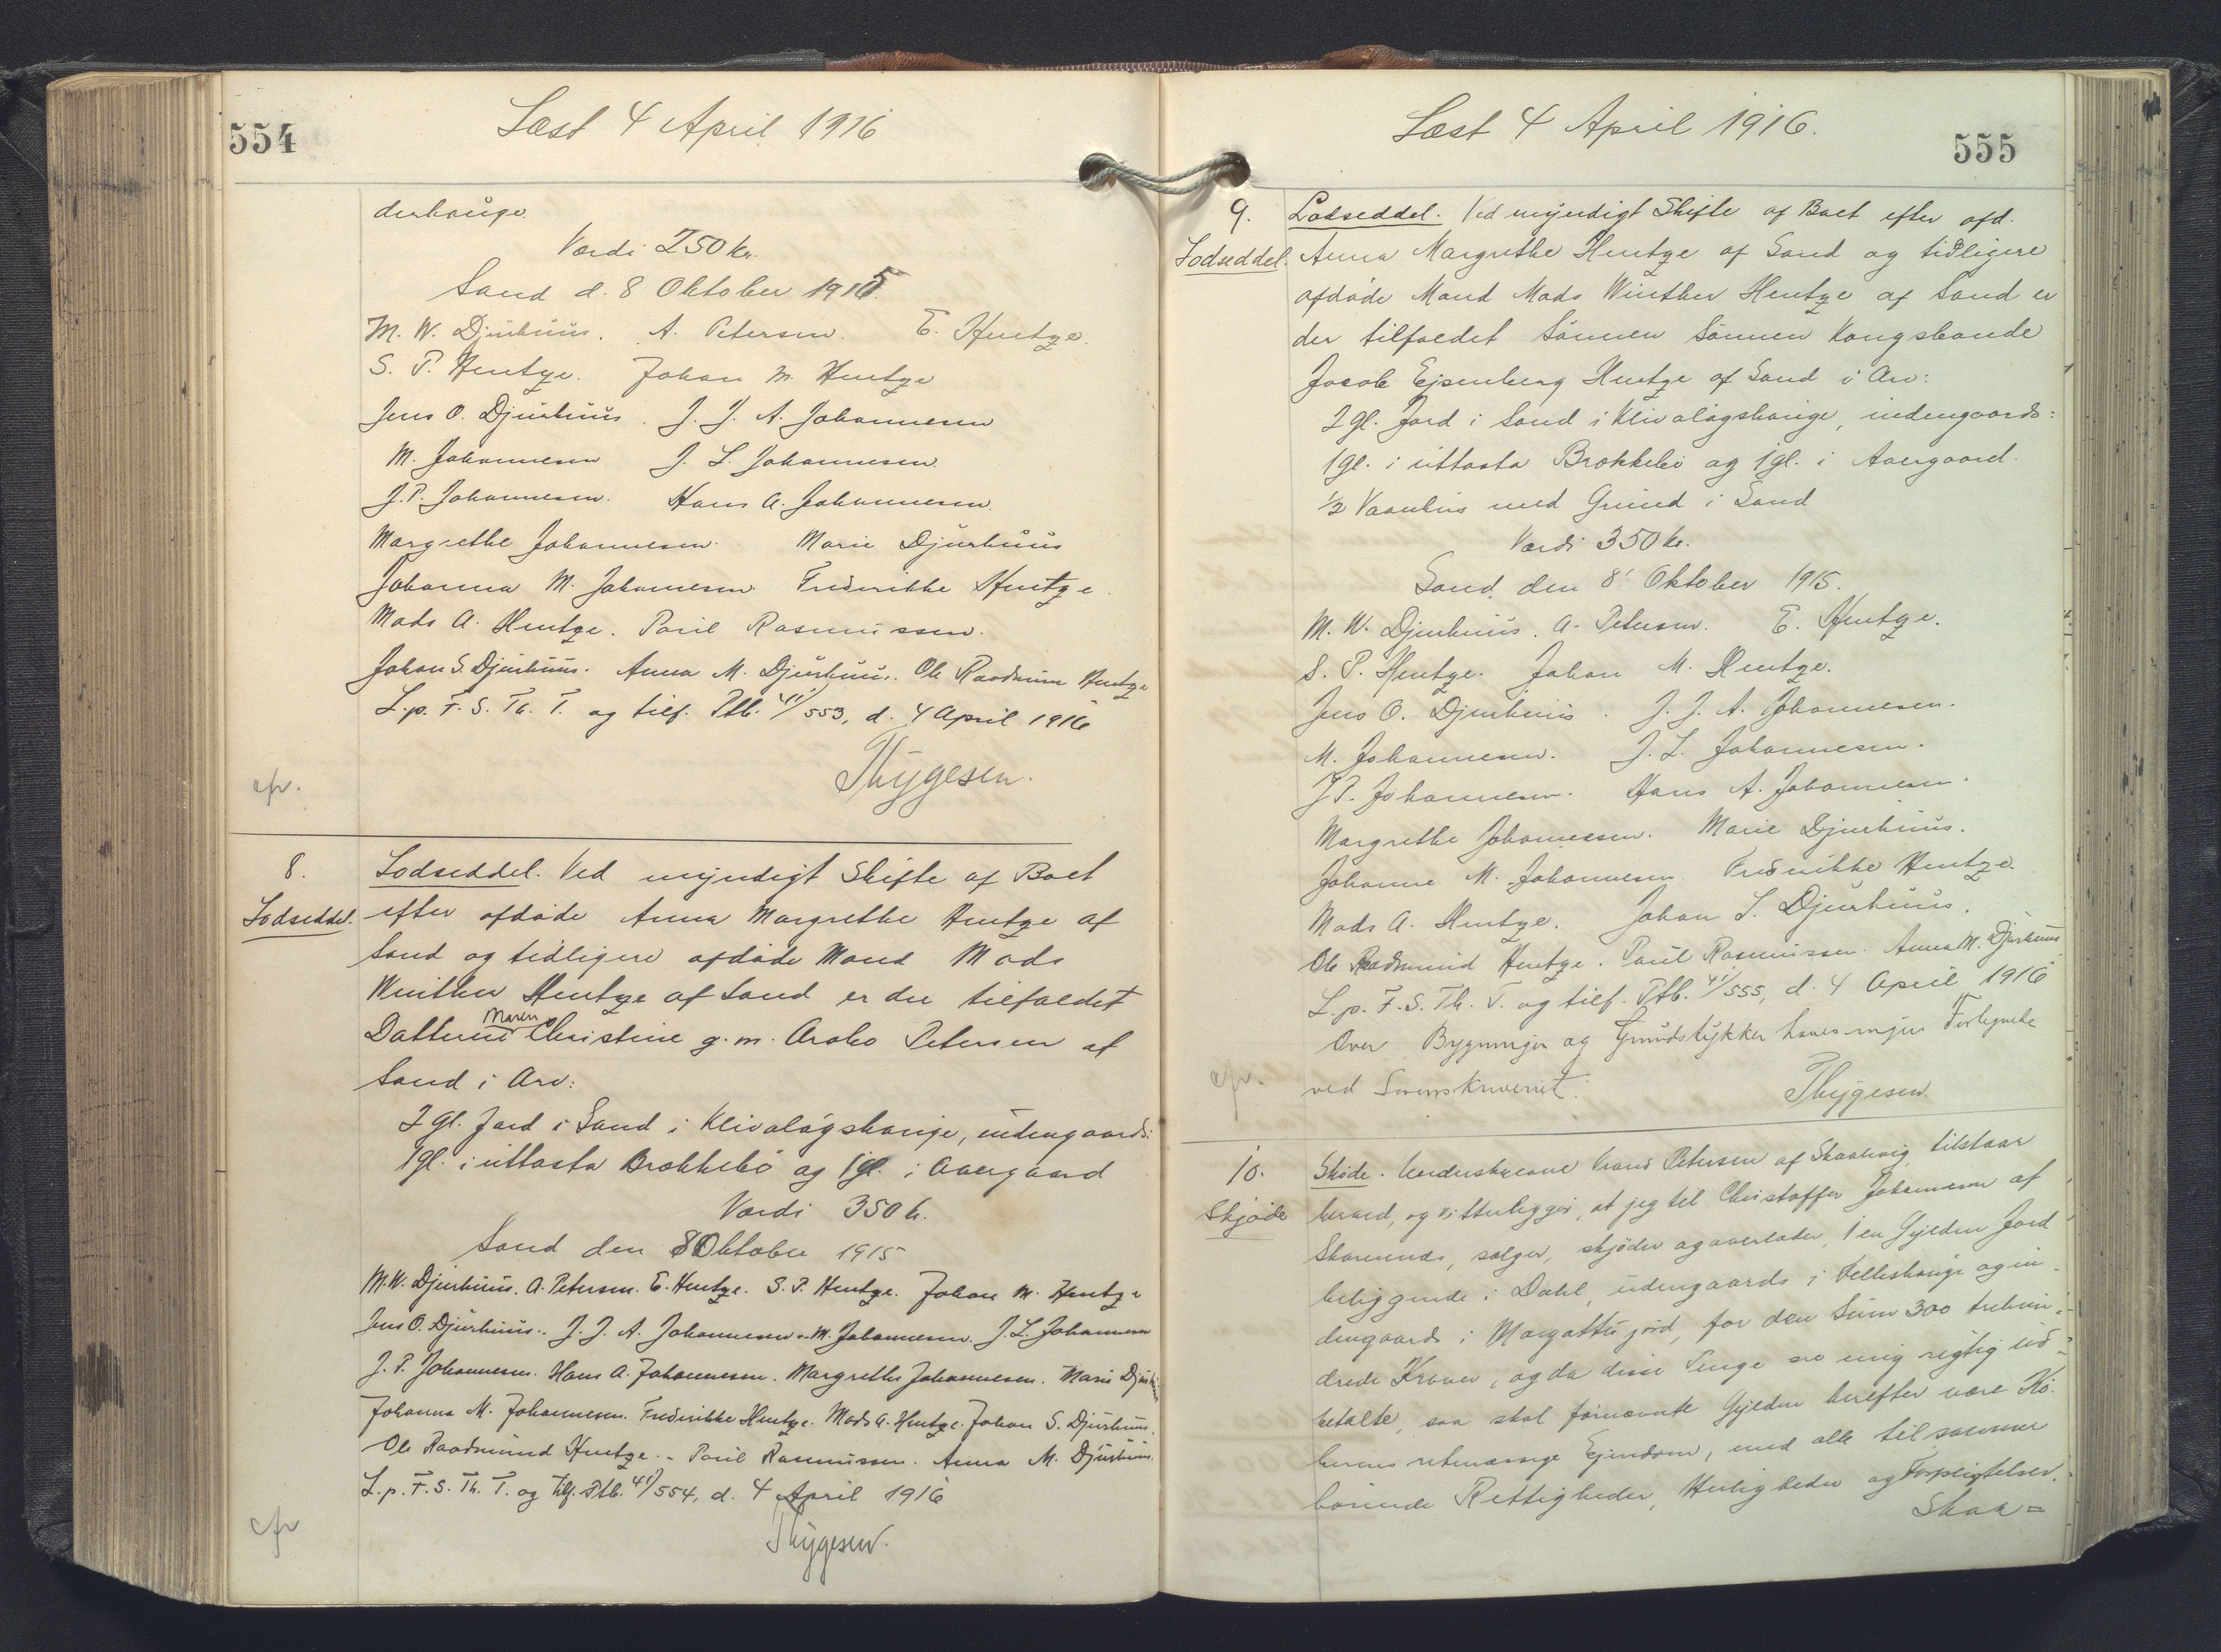 554
Læst 4 April 1916
derhauge.
Værdi 250 Kr.
Sand d. 8 Oktober 1915.
M. W. Djurhuus. A. Petersen. E. Hentze.
S. P. Hentze. Johan M. Hentze
Jens O. Djurhuus. J. J. A. Johannesen
M. Johannesen J. L. Johannesen.
J. P. Johannesen. Hans A. Johannesen.
Margrethe Johannesen. Marie Djurhuus
Johanna M. Johannesen Frederikke Hentze.
Mads A. Hentze. Poul Rasmussen.
Johan S. Djurhuus. Anna M. Djurhuus. Ole Raadmun Hentze
L. p. F. S. Th. T. og tilf. Ptb. 41/553, d. 4 April 1916
Thygesen.
cfr.
8.
Lodseddel.
Lodseddel. Ved myndigt Skifte af Boet
efter afdøde Anna Margrethe Hentze af
Sand og tidligere afdøde Mand Mads
Winther Hentze af Sand er der tilfaldet
Datteren Maren Christine g. m. Arabo Petersen af
Sand i Arv:
2 gl. Jord i Sand i Klivalágshauge, indengaards:
1 gl. i úttasta Brekkebø og 1 gl. i Aaergaard
Værdi 350 Kr.
Sand den 8 Oktober 1915
M. W. Djurhuus. A. Petersen. E. Hentze. S. P. Hentze. Johan M. Hentze
Jens O. Djurhuus.. J. J. A. Johannesen.. M. Johannesen. J. L. Johannesen
J. P. Johannesen. Hans A. Johannesen. Margrethe Johannesen. Marie Djurhuus
Johanna M. Johannesen. Frederikke Hentze. Mads A. Hentze. Johan S. Djurhuus.
Ole Raadmund Hentze.. Poul Rasmussen. Anna M. Djurhuus.
L. p. F. S. Th. T. og tilf. Ptb. 41/554, d. 4 April 1916
Thygesen.
cfr
Læst 4 April 1916.
555
9.
Lodseddel.
Lodseddel. Ved myndigt Skifte af Boet efter afd.
Anna Margrethe Hentze af Sand og tidligere
afdøde Mand Mads Winther Hentze af Sand er
der tilfaldet Sønnen Sønnen Kongsbonde
Jacob Ejsenberg Hentze af Sand i Arv:
2 gl. Jord i Sand i Klivalágshauge, indengaards:
1 gl. i úttasta Brekkebø og 1 gl. i Aaergaard.
1/2 Vaanhus med Grund i Sand
Værdi 350 Kr.
Sand, den 8' Oktober 1915.
M. W. Djurhuus. A. Petersen. E. Hentze.
S. P. Hentze. Johan M. Hentze.
Jens O. Djurhuus. J. J. A. Johannesen.
M. Johannesen. J. L. Johannesen.
J P. Johannesen. Hans A. Johannesen.
Margrethe Johannesen. Marie Djurhuus.
Johanne M. Johannesen Frederikke Hentze.
Mads A. Hentze. Johan S. Djurhuus.
Ole Raadmund Hentze. Poul Rasmussen. Anna M. Djurhuus
L. p. F. S. Th. T. og tilf. Ptb. 41/555, d. 4 April 1916
Over Bygninger og Grundstykker haves ingen Fortegnelse
ved Sorenskriveriet.
Thygesen.
cfr.
10.
Skjøde
Skøde. Underskrevne Hans Petersen af Skaalevig, tilstaar
herved, og vitterliggør, at jeg til Christoffer Johannesen af
Skarvenæs, sælger, skjøder og overlader, 1 en Gylden Jord
beliggende i Dahl, udengaards i Felleshauge og in-
dengaards i Margattujørd, for den Sum 300 trehun-
drede Kroner, og da disse Penge ere mig rigtig ud-
betalte, saa skal førnævnte Gylden herefter være Kø-
berens retmæssige Ejendom, med alle tilsamme
hørende Rettigheder, Herligheder og Forpligtelser.
Skaa=